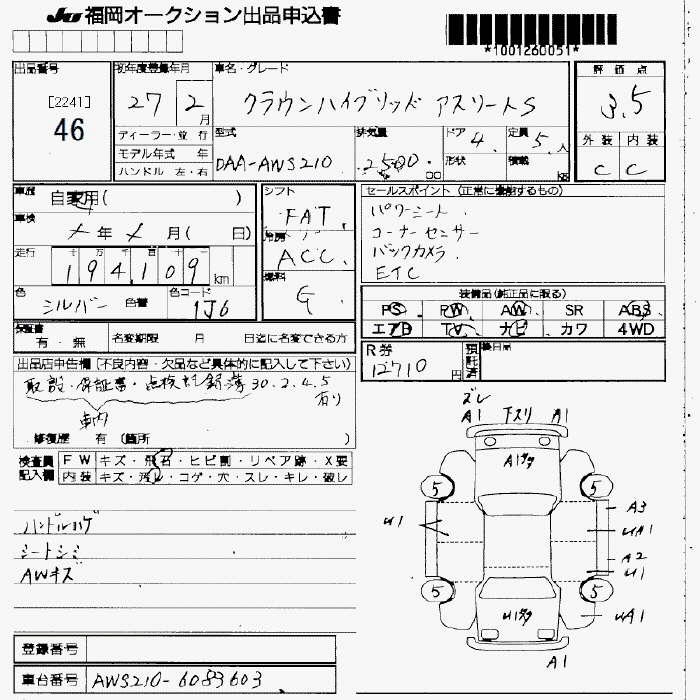 JU 福岡オークション出品申込書
*1001260051*
出品番号
[2241]
46
初年度登録年月
27 2 月
車名・グレード
クラウンハイブリッド アスリートS
評価点
3.5
外装 内装
C C
ディーラー・並行
モデル年式 年
ハンドル 左・右
型式
DAA-AWS210
排気量
2500 cc
ドア 4
形状
定員 5人
積載 kg
車歴 自家用( )
車検
年 月( 日)
走行
194,109 km
色 シルバー 色替
色コード
1J6
シフト
FAT
冷房
ACC
燃料
G
セールスポイント (正常に機能するもの)
パワーシート
コーナーセンサー
バックカメラ
ETC
装備品(純正品に限る)
PS PW AW SR ABS
エアB TV ナビ カワ 4WD
保証書
有・無
名変期限 月 日迄に名変できる方
R券
12710円
預託済
後日品
出品店申告欄 (不良内容・欠品など具体的に記入して下さい)
取説・保証書・点検記録簿 30.2.4.5
有り
車内
修復歴 有 (箇所 )
検査員 FW キズ・飛石・ヒビ割・リペア跡・X要
記入欄 内装 キズ・汚れ・コゲ・穴・スレ・キレ・破レ
ハンドルハゲ
シートシミ
AWキズ
ズレ
A1 下スリ A1
A1
5 5
A3
U1
UA1
A2
U1
5 5
U1
UA1
A1
登録番号
車台番号 AWS210-6083603